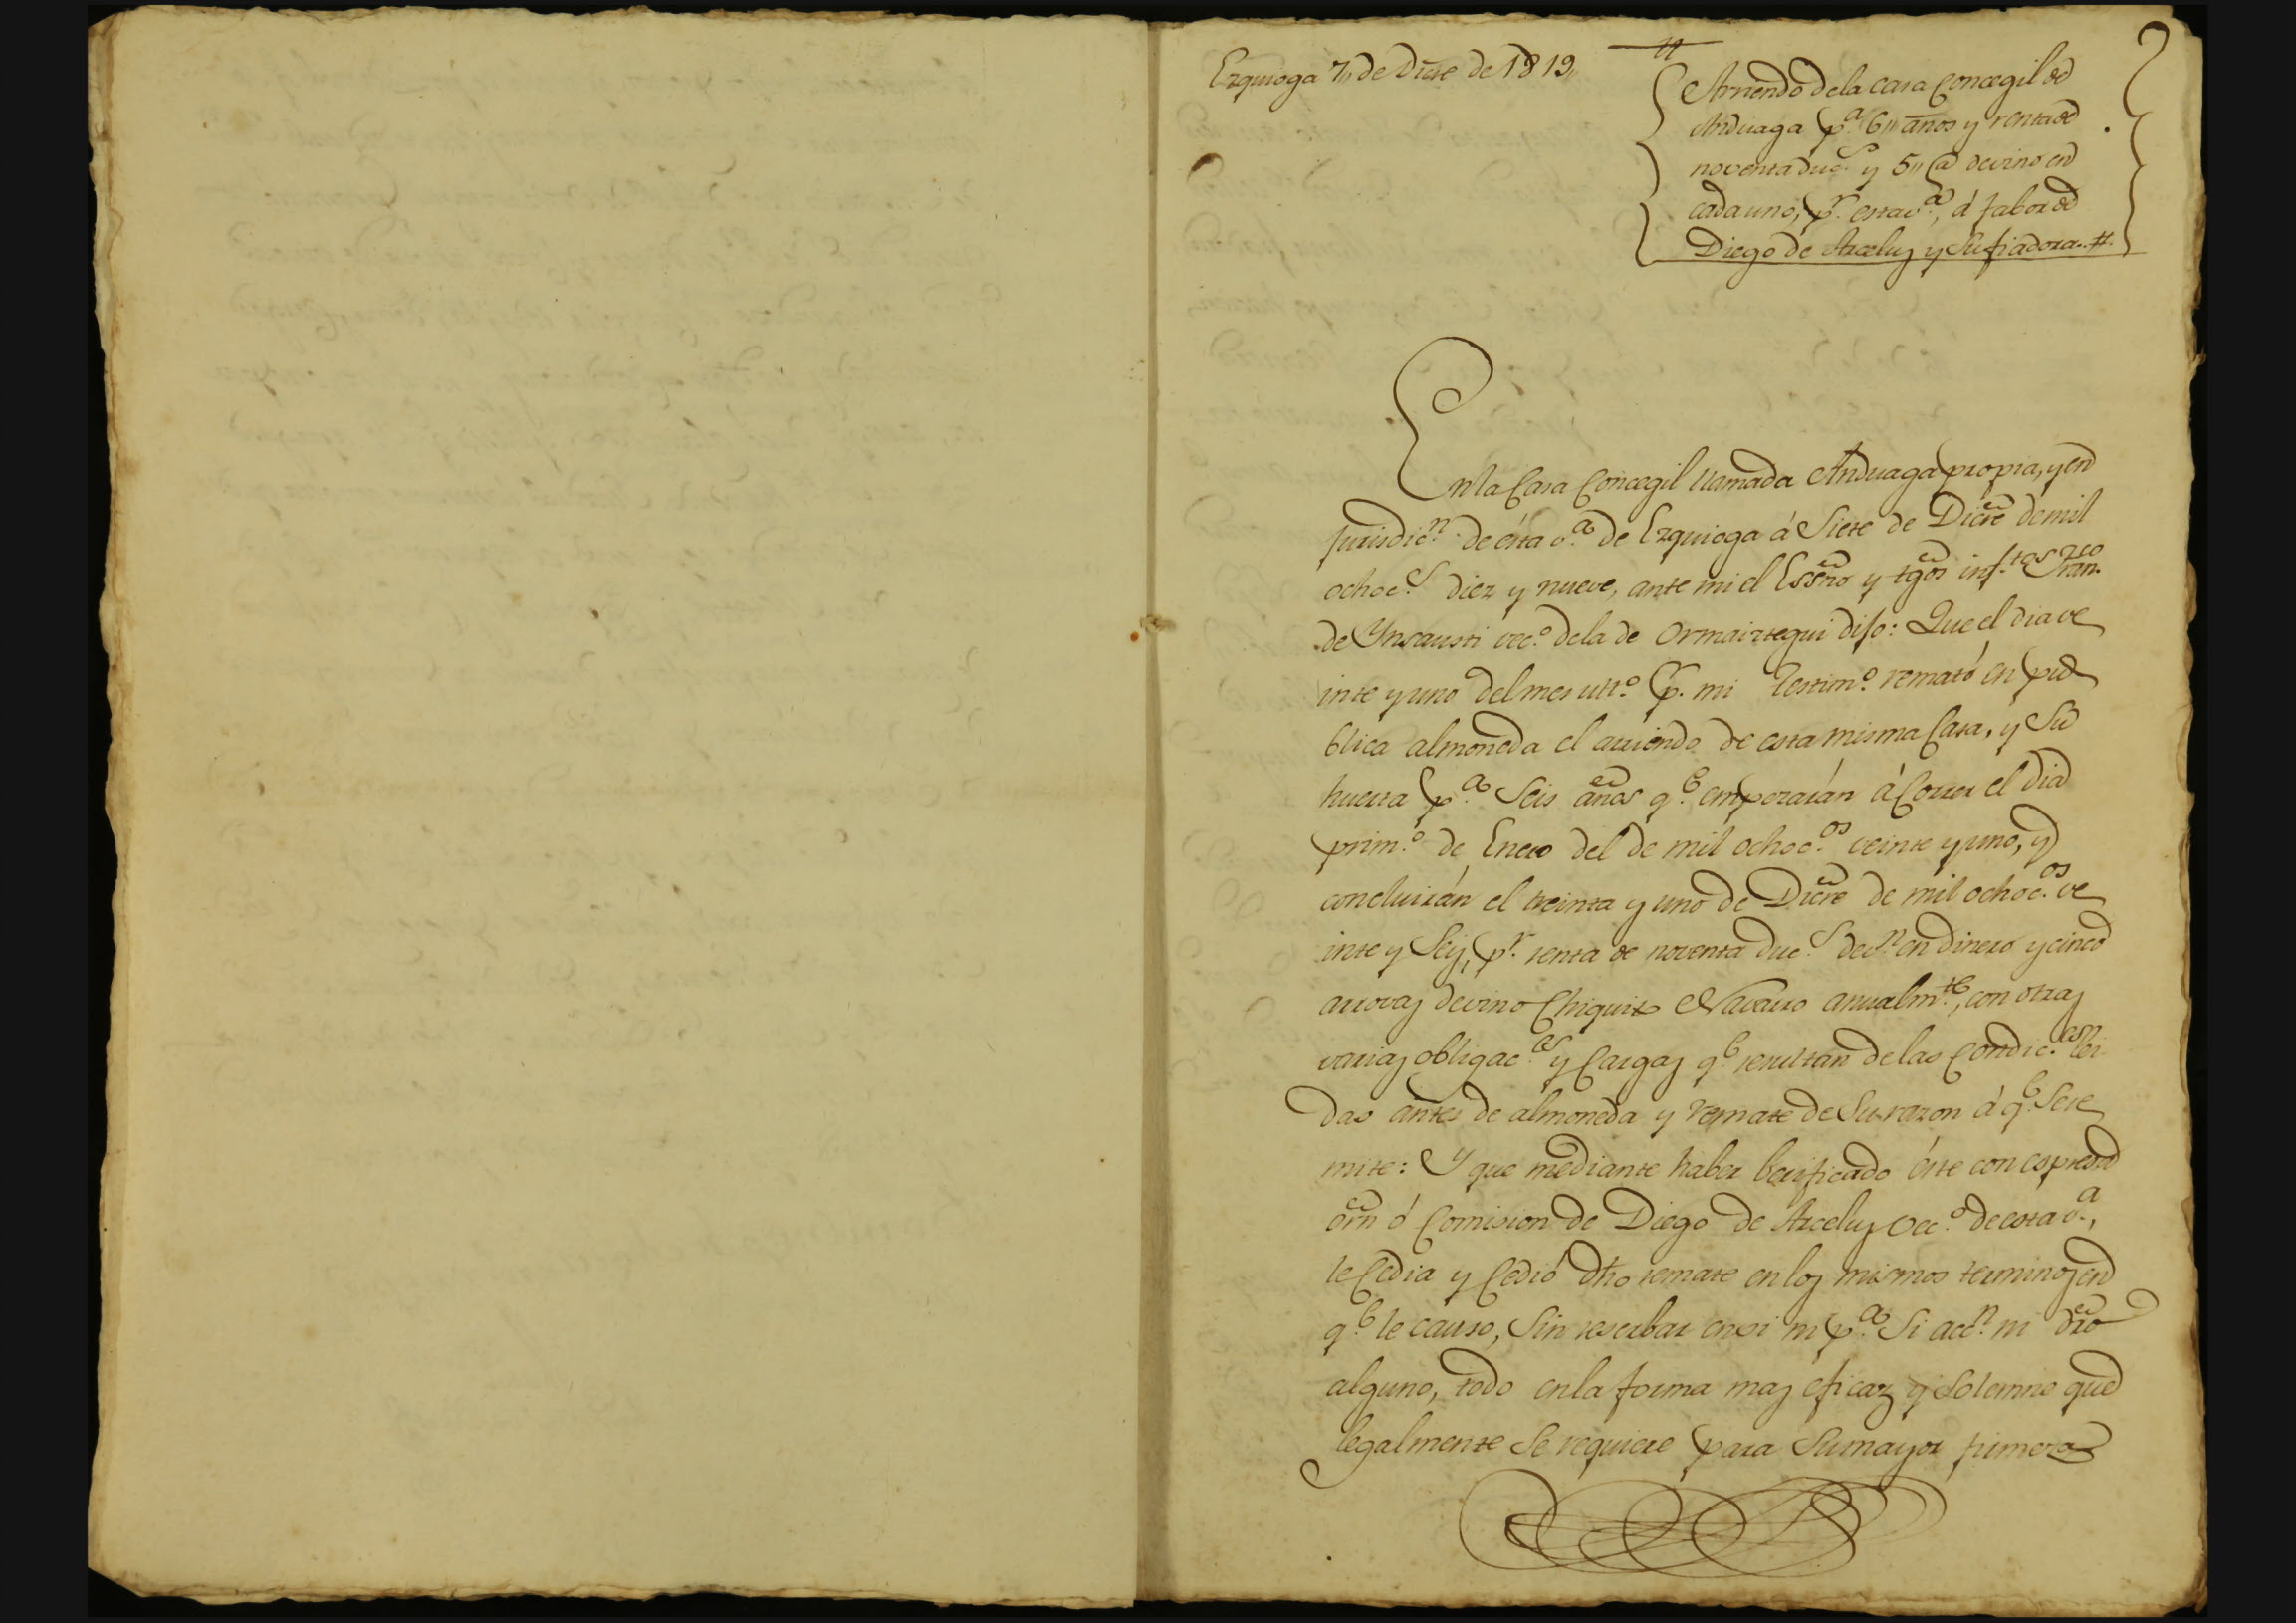 Ezquioga 7,, de Dicre de 1819,,
Arriendo de la casa Concegil de
Anduaga p.a 6,, años y renta de
noventa duc.s y 5,, @ de vino en
cada uno, p.r esta v.a, á fabor de
Diego de Arceluz y Su fiadora.#.
En la Casa Concegil llamada Anduaga propia, y en
Jurisdic.n de ésta v.a de Ezquioga á Siete de Dicre de mil
ochoc.s diez y nueve, ante mi el Essno y tgos inf.tos Fran.co
de Ynsausti vec.o de la de Ormaiztegui dijo: Que el dia ve
inte y uno del mes ult.o p.r mi testim.o remató en pu
blica almoneda el arriendo de esta misma Casa, y Su
huerta p.a Seis años q.e empezarán á Correr el dia
prim.o de Enero del de mil ochoc.os veinte y uno, y
concluirán el treinta y uno de Dicre de mil ochoc.os ve
inte y Seis, p.r renta de noventa duc.s de v.n en dinero y cinco
arrovas de vino Chiquito Navarro anualm.te, con otras
varias obligac.es y Cargas q.e resultan de las Condic.es lei
das antes de almoneda y remate de Su razon á q.e Se re
mite: Y que mediante haber berificado éste con espresa
orn ó Comision de Diego de Arceluz vec.o de esta v.a,
le Cedia y Cedió dho remate en los mismos terminos en
q.e le causo, Sin reserbar en si ni p.a Si acc.n ni dro
alguno, todo en la forma mas eficaz y Solemne que
legalmente Se requiere para Su mayor firmeza